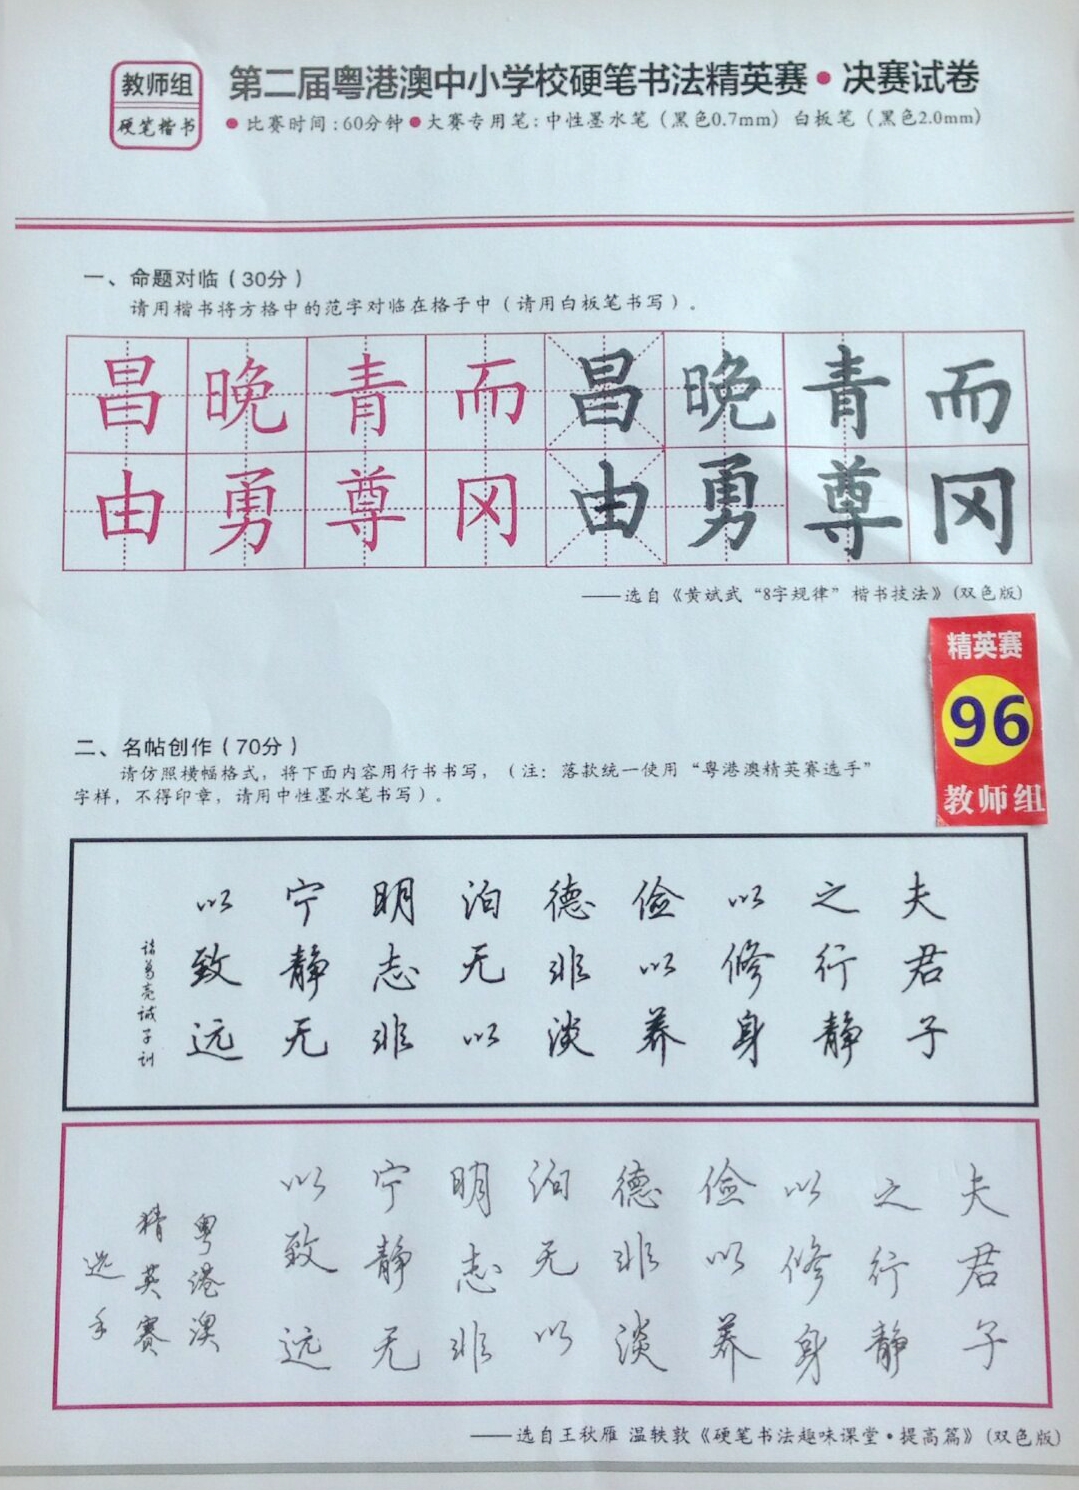 教师组
硬笔楷书
第二届粤港澳中小学校硬笔书法精英赛·决赛试卷
●比赛时间:60分钟●大赛专用笔:中性墨水笔（黑色0.7mm）白板笔（黑色2.0mm）
一、命题对临（30分）
请用楷书将方格中的范字对临在格子中（请用白板笔书写）。
昌晚青而昌晚青而
由勇尊冈由勇尊冈
——选自《黄斌武“8字规律”楷书技法》(双色版)
精英赛
96
教师组
二、名帖创作（70分）
请仿照横幅格式，将下面内容用行书书写，（注：落款统一使用“粤港澳精英赛选手”
字样，不得印章，请用中性墨水笔书写）。
夫君子
之行静
以修身
俭以养
德非淡
泊无以
明志非
宁静无
以致远
诸葛亮诫子训
夫君子
之行静
以修身
俭以养
德非淡
泊无以
明志非
宁静无
以致远
粤港澳
精英赛
选手
——选自王秋雁 温轶敦《硬笔书法趣味课堂·提高篇》(双色版)